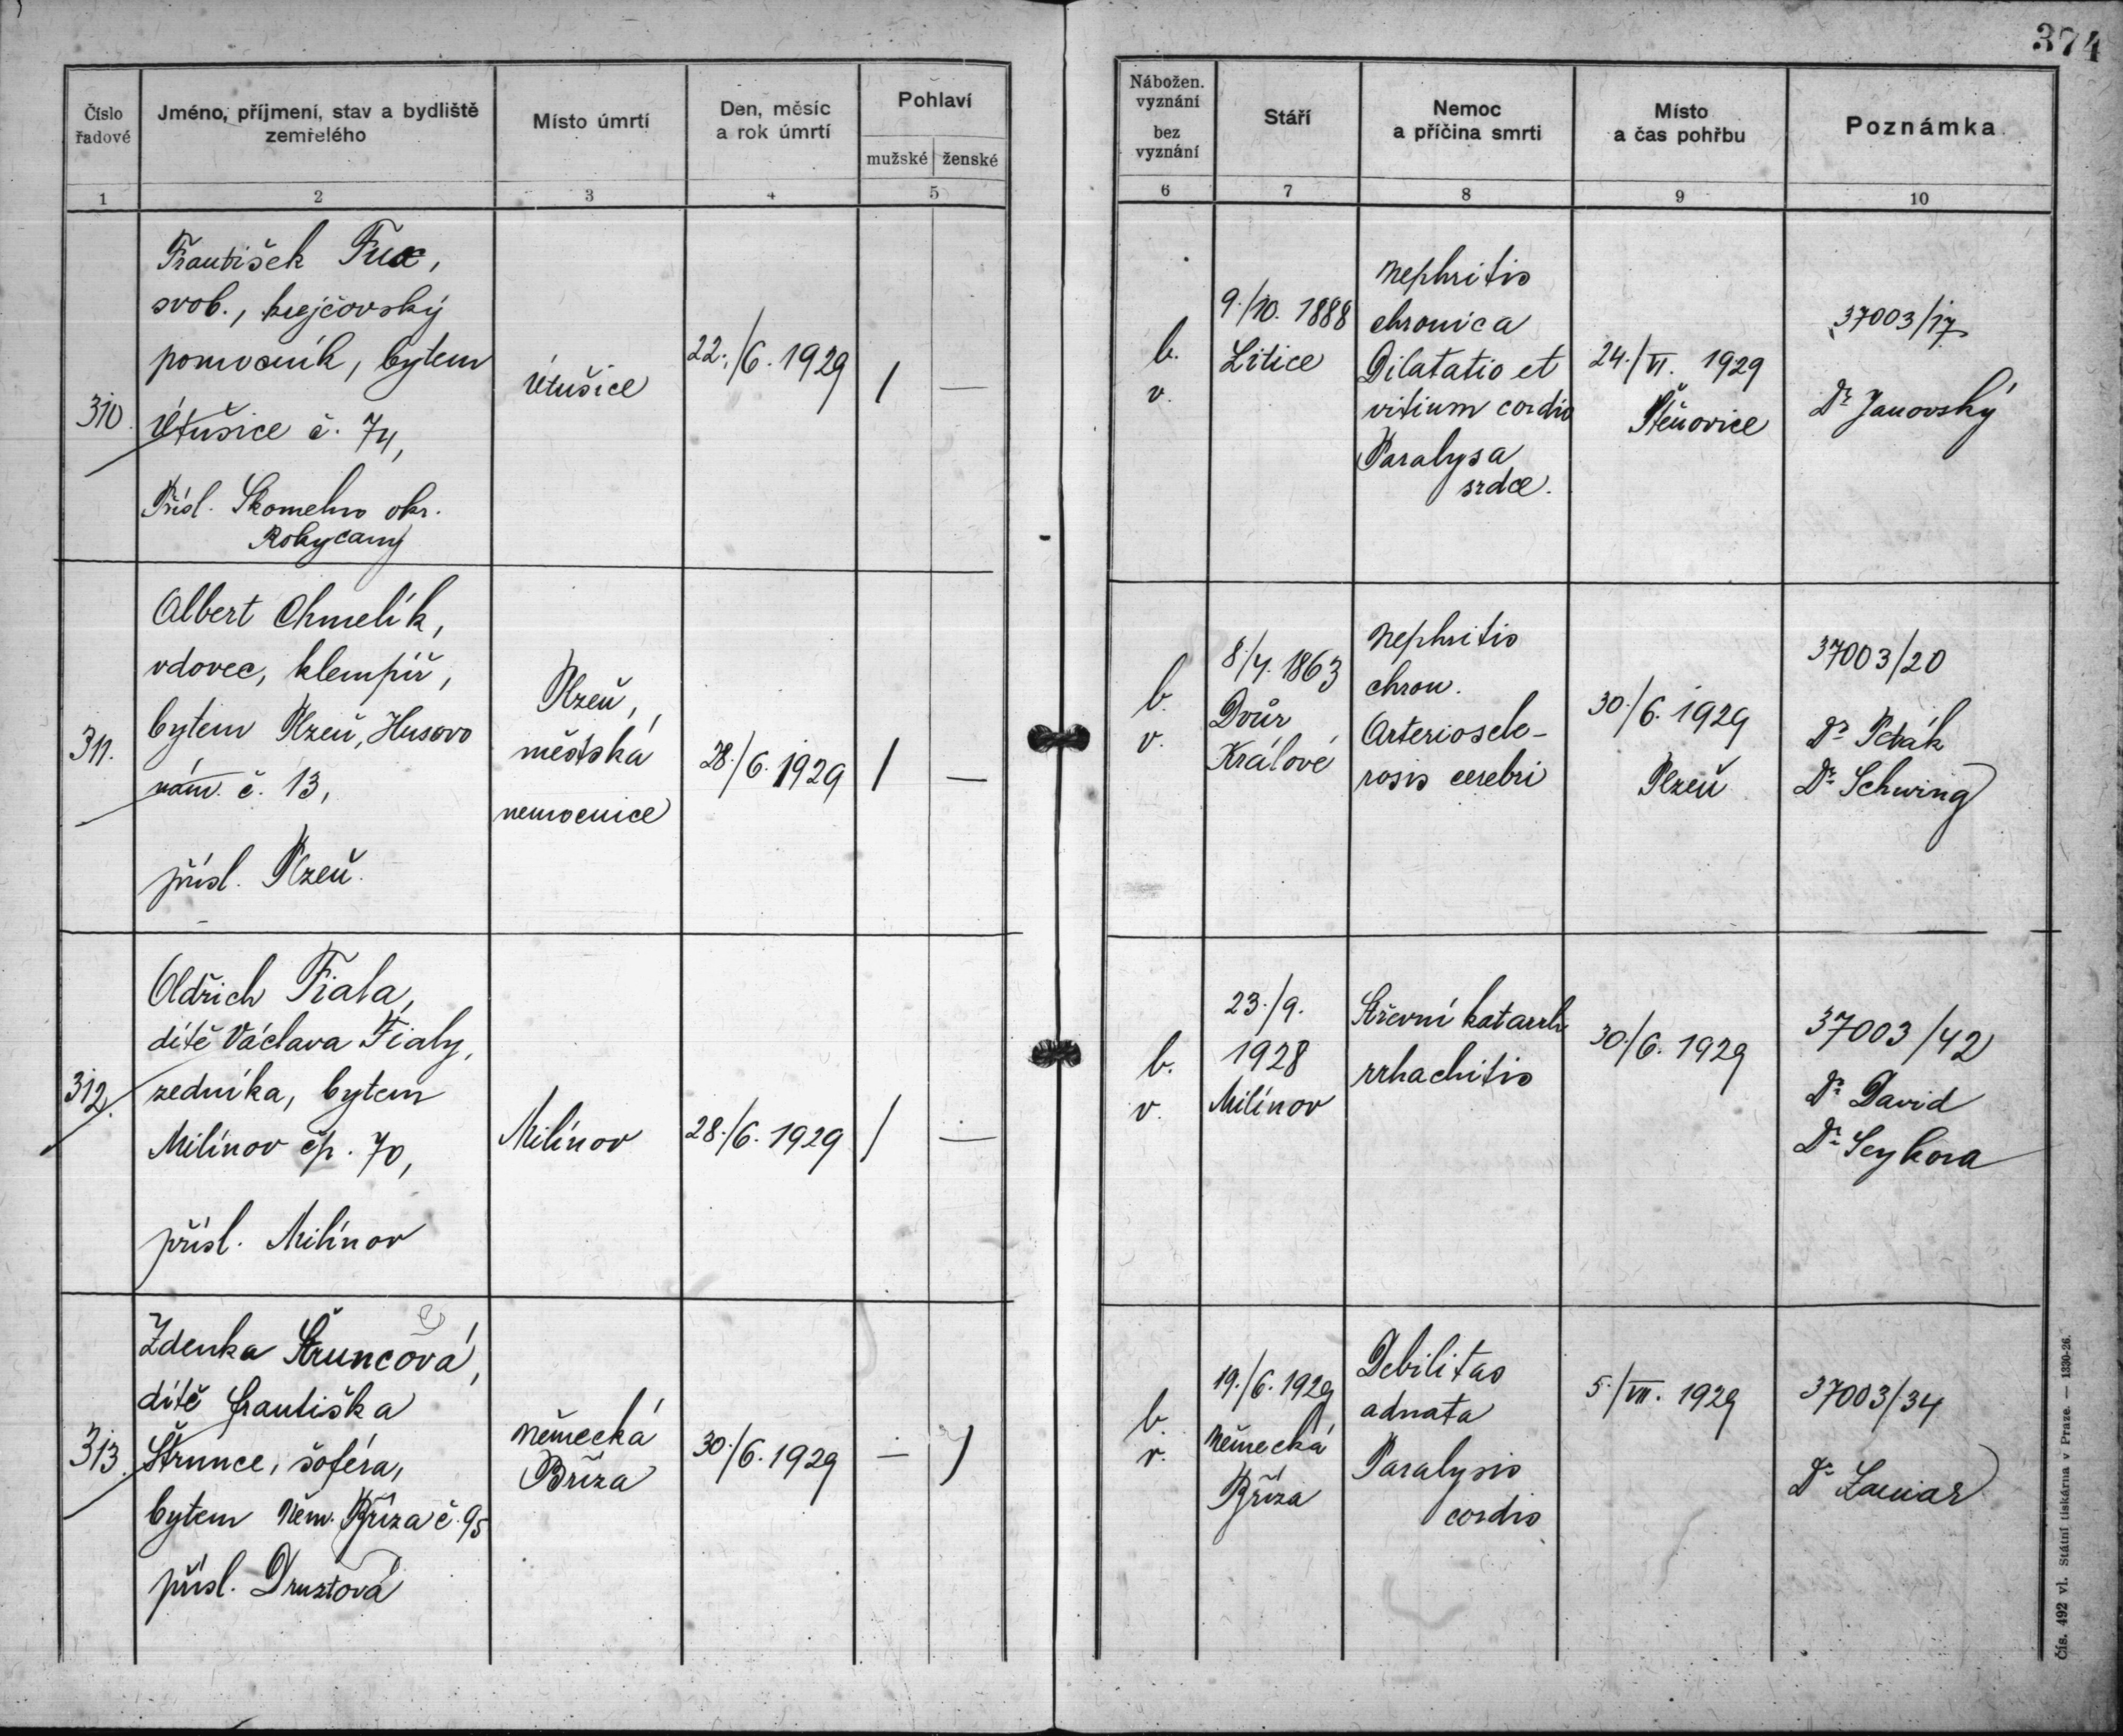 374
Číslo
řadové
Jméno, příjmení, stav a bydliště
zemřelého
Místo úmrtí
Den, měsíc
a rok úmrtí
Pohlaví
mužské
ženské
Nábožen.
vyznání
bez
vyznání
Stáří
Nemoc
a příčina smrti
Místo
a čas pohřbu
Poznámka
1
2
3
4
5
6
7
8
9
10
310.
František Fux,
svob., krejčovský
pomocník, bytem
Útušice č. 74,
Přísl. okr.
Rokycany
Útušice
22./6. 1929
/
—
b.
v.
9./10. 1888
Litice
Nephritis
chronica
Dilatatio et
vitium cordis
Paralysa
srdce.
24./VI. 1929
Štěnovice
37003/17
Dr. Janovský
311.
Albert Chmelík,
vdovec, klempíř,
bytem Plzeň, Husovo
nám. č. 13,
přísl. Plzeň.
Plzeň,
městská
nemocnice
28./6. 1929
/
—
b.
v.
8./4. 1863
Dvůr
Králové
Nephritis
chron.
Arterioscle-
rosis cerebri
30./6. 1929
Plzeň
37003/20
Dr. Pták
Dr. Schwing
312.
Oldřich Fiala,
dítě Václava Fialy,
zedníka, bytem
Milínov čp. 70,
přísl. Milínov
Milínov
28./6. 1929
/
—
b.
v.
23./9.
1928
Milínov
Střevní katarrh
rrhachitis
30./6. 1929
37003/42
Dr. David
Dr. Seykora
313.
Zdenka Štruncová,
dítě Františka
Štrunce, šoféra,
bytem Něm. Bříza č. 95
přísl. Druztová
Německá
Bříza
30./6. 1929
—
/
b.
v.
19./6. 1929
Německá
Bříza
Debilitas
adnata
Paralysis
cordis
5./VII. 1929
37003/34
Dr.
Čís. 492 vl. Státní tiskárna v Praze. — 1330-26.